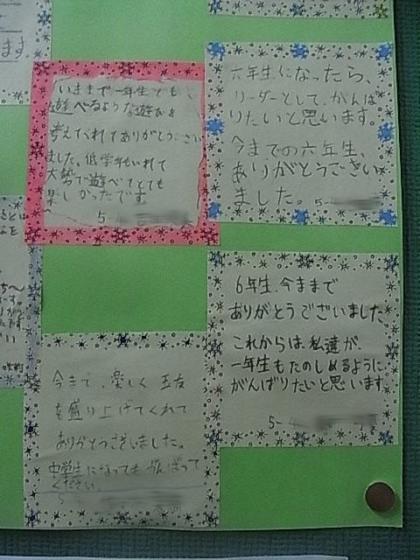 いままで一年生でも、
遊べるような遊びを
考えてくれてありがとうござい
ました。低学年もいれて
大勢で遊べてとても
楽しかったです
5
六年生になったら、
リーダーとして、がんば
りたいと思います。
今までの六年生、
ありがとうござい
ました。
5-
今まで、楽しく
を盛り上げてくれて
ありがとうございました。
中学生になってもがんばって
ください。
5
6年生、今まで
ありがとうございました。
これからは、私達が、
一年生もたのしめるように
がんばりたいと思います。
5-4
ます